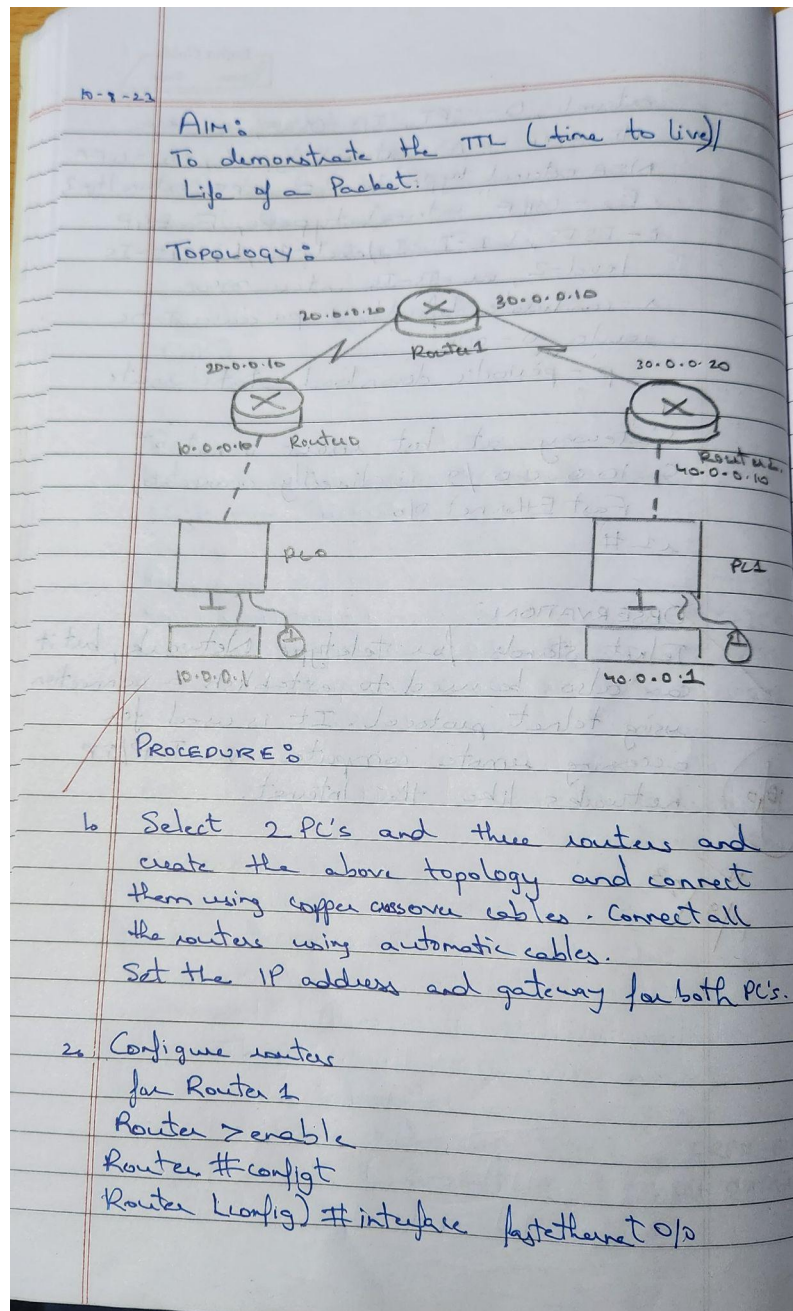 10-8-23
AIM:
To demonstrate the TTL (time to live)/
Life of a Packet.
TOPOLOGY:
20.0.0.20
30.0.0.10
Router1
20.0.0.10
30.0.0.20
10.0.0.10
Router0
Router2
40.0.0.10
PC0
PC1
10.0.0.1
40.0.0.1
PROCEDURE:
1. Select 2 PC's and three routers and
create the above topology and connect
them using copper crossover cables. Connect all
the routers using automatic cables.
Set the IP address and gateway for both PC's.
2. Configure routers
for Router 1
Router >enable
Router #configt
Router (config) #interface fastethernet 0/0